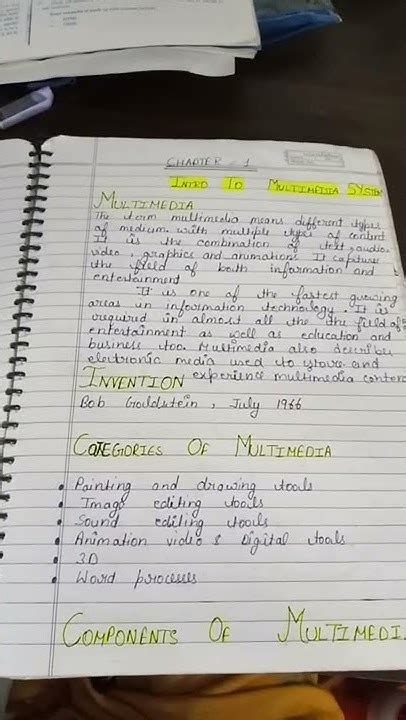 CHAPTER - 1
INTRO TO MULTIMEDIA SYSTEM
MULTIMEDIA
The term multimedia means different types
of medium with multiple types of content
It is the combination of text, audio
video, graphics and animations. It capture
the field of both information and
entertainment
It is one of the fastest growing
areas in information technology. It is
required in almost all the the field of
entertainment as well as education and
business too. Multimedia also describes
electronic media used to store and
experience multimedia content
INVENTION
Bob Goldstein, July 1966
CATEGORIES OF MULTIMEDIA
• Painting and drawing tools
• Image editing tools
• Sound editing tools
• Animation video & Digital tools
• 3D
• Word processes
COMPONENTS OF MULTIMEDI